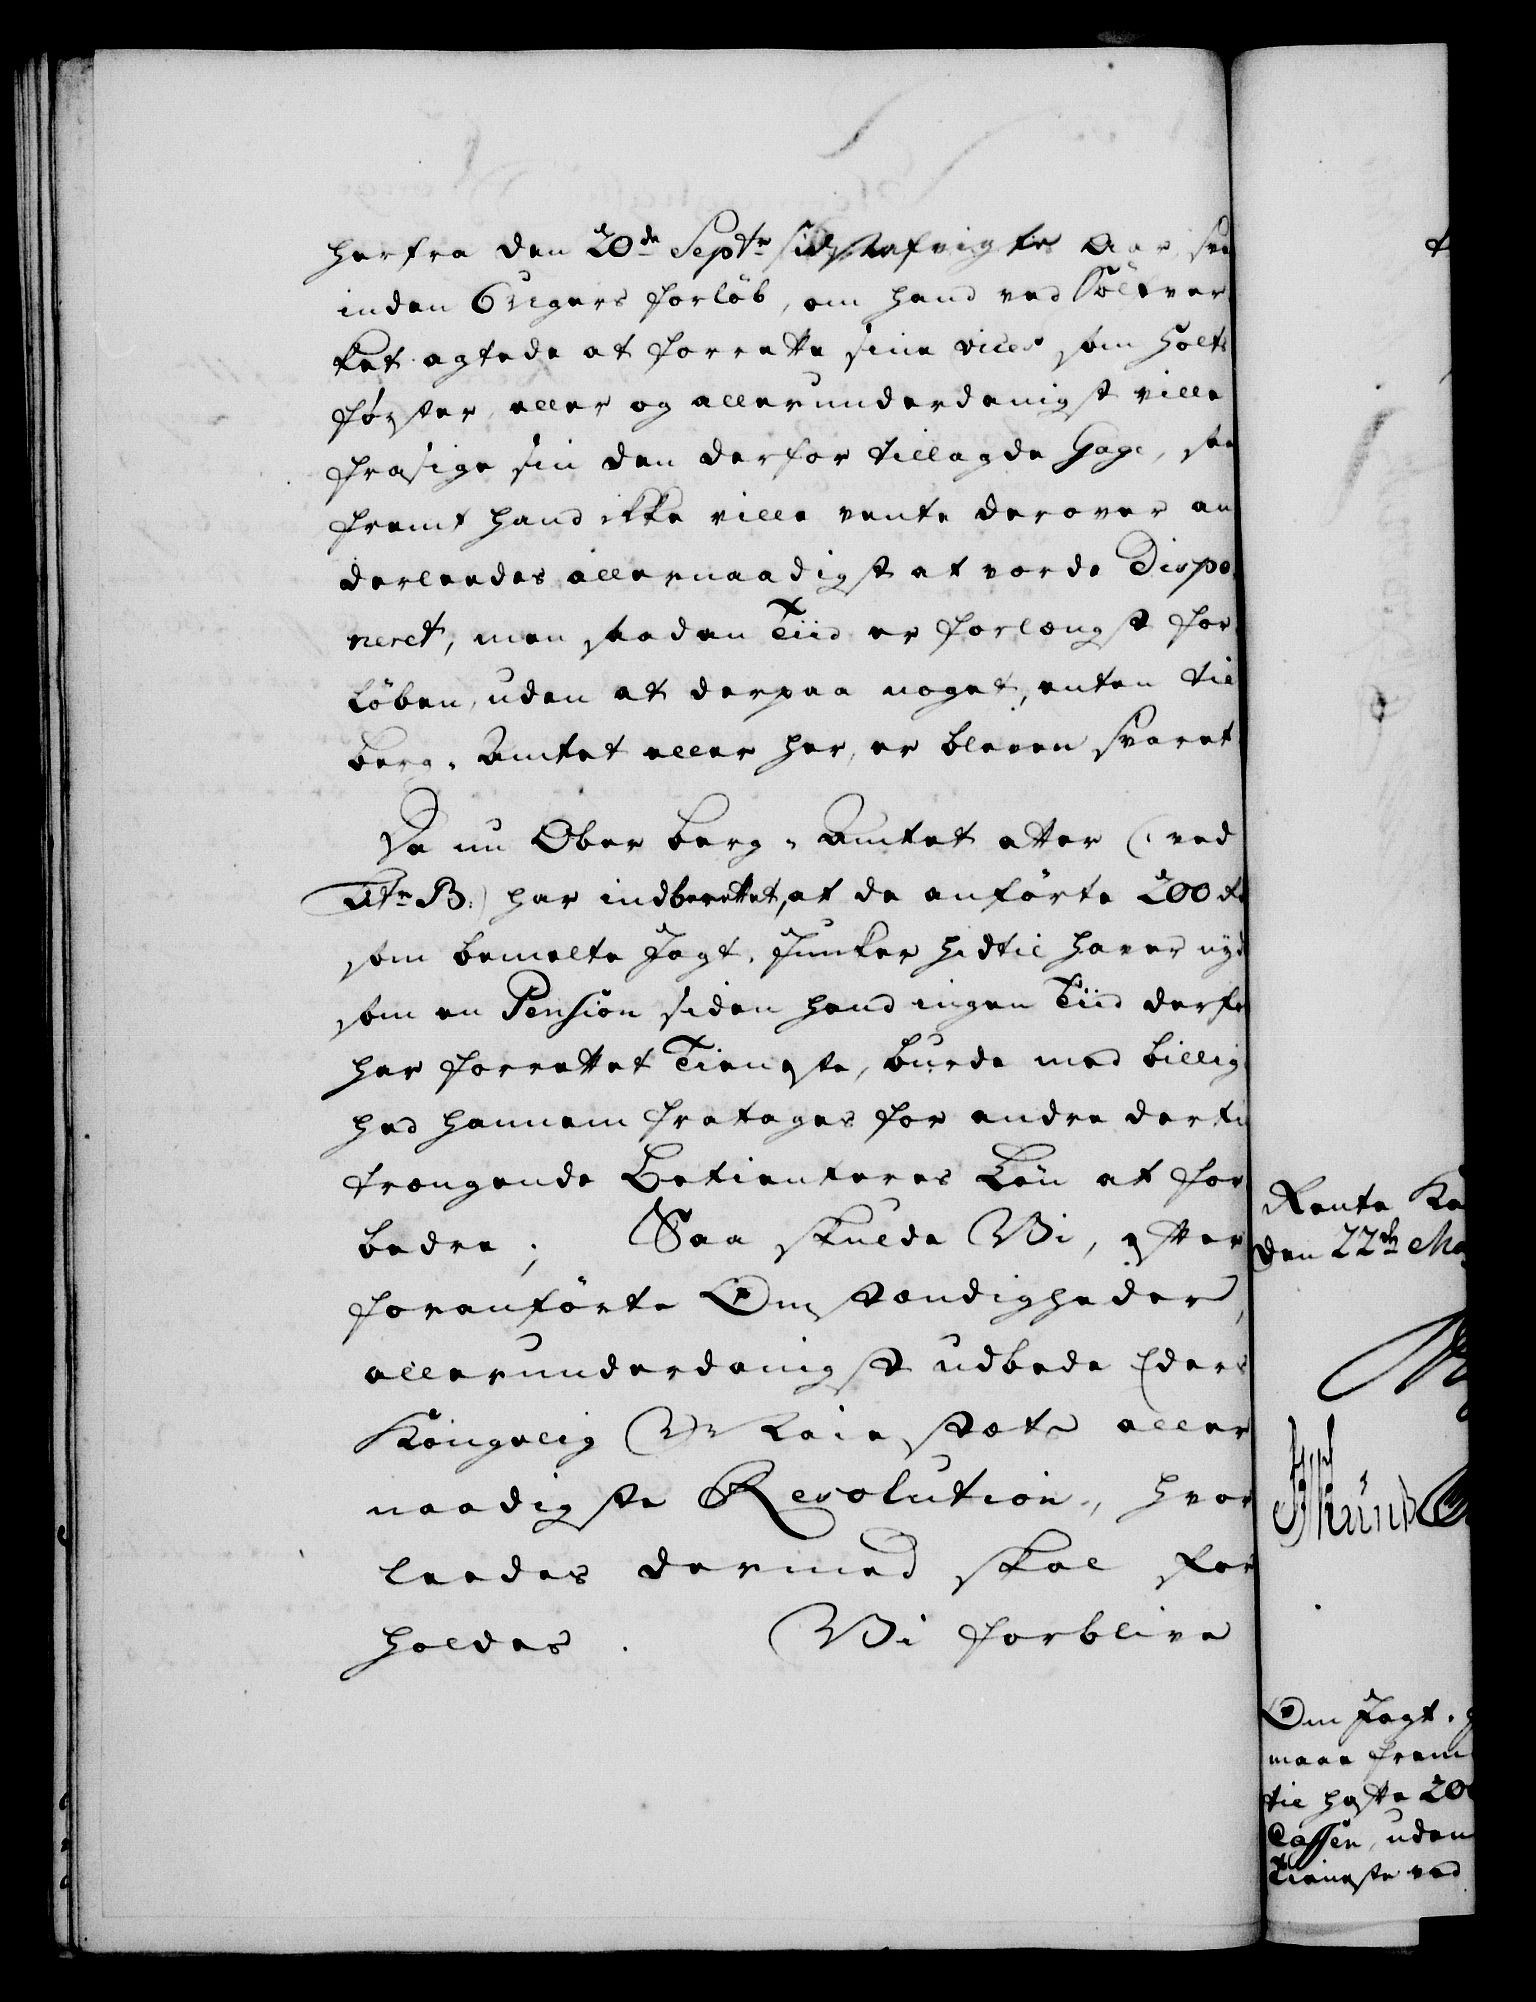 herfra den 20de Septr sidstafvigte Aar, sva
inden 6 Ugers forløb, om hand ved Sölver
ket agtede at forrette sine vices som Holtz
førster, eller og allerunderdanigst ville
frasige sin den derfor tillagde Gage, saa
fremt hand ikke ville vente derover an
derleedes allernaadigst at vorde Dispo
neret, men saadan Tiid er forlængst for
løben, uden at derpaa noget, enten til
Berg-Amtet eller her, er bleven svaret
Da nu Ober Berg-Amtet atter (: ved
Litr B:) har indberettet, at de anførte 200 rd
som bemelte Jagt-Junker hidtil haver nyd
som en Pension siden hand ingen Tiid derfo
har forrettet Tieneste, burde med billig
hed hannem fratages for andre dertil
trængende Betienteres Løn at for
bedre; Saa skulde Vi, efter
foranførte Omstændigheder,
allerunderdanigst udbede Eders
Kongelig Maiestæts aller
naadigste Resolution, hvor
leedes dermed skal for
holdes. Vi forblive
Rente Ka
den 22de Ma
Om Jagt-
maae frem
til hafte 200
Cassen, uden
Tieneste ved